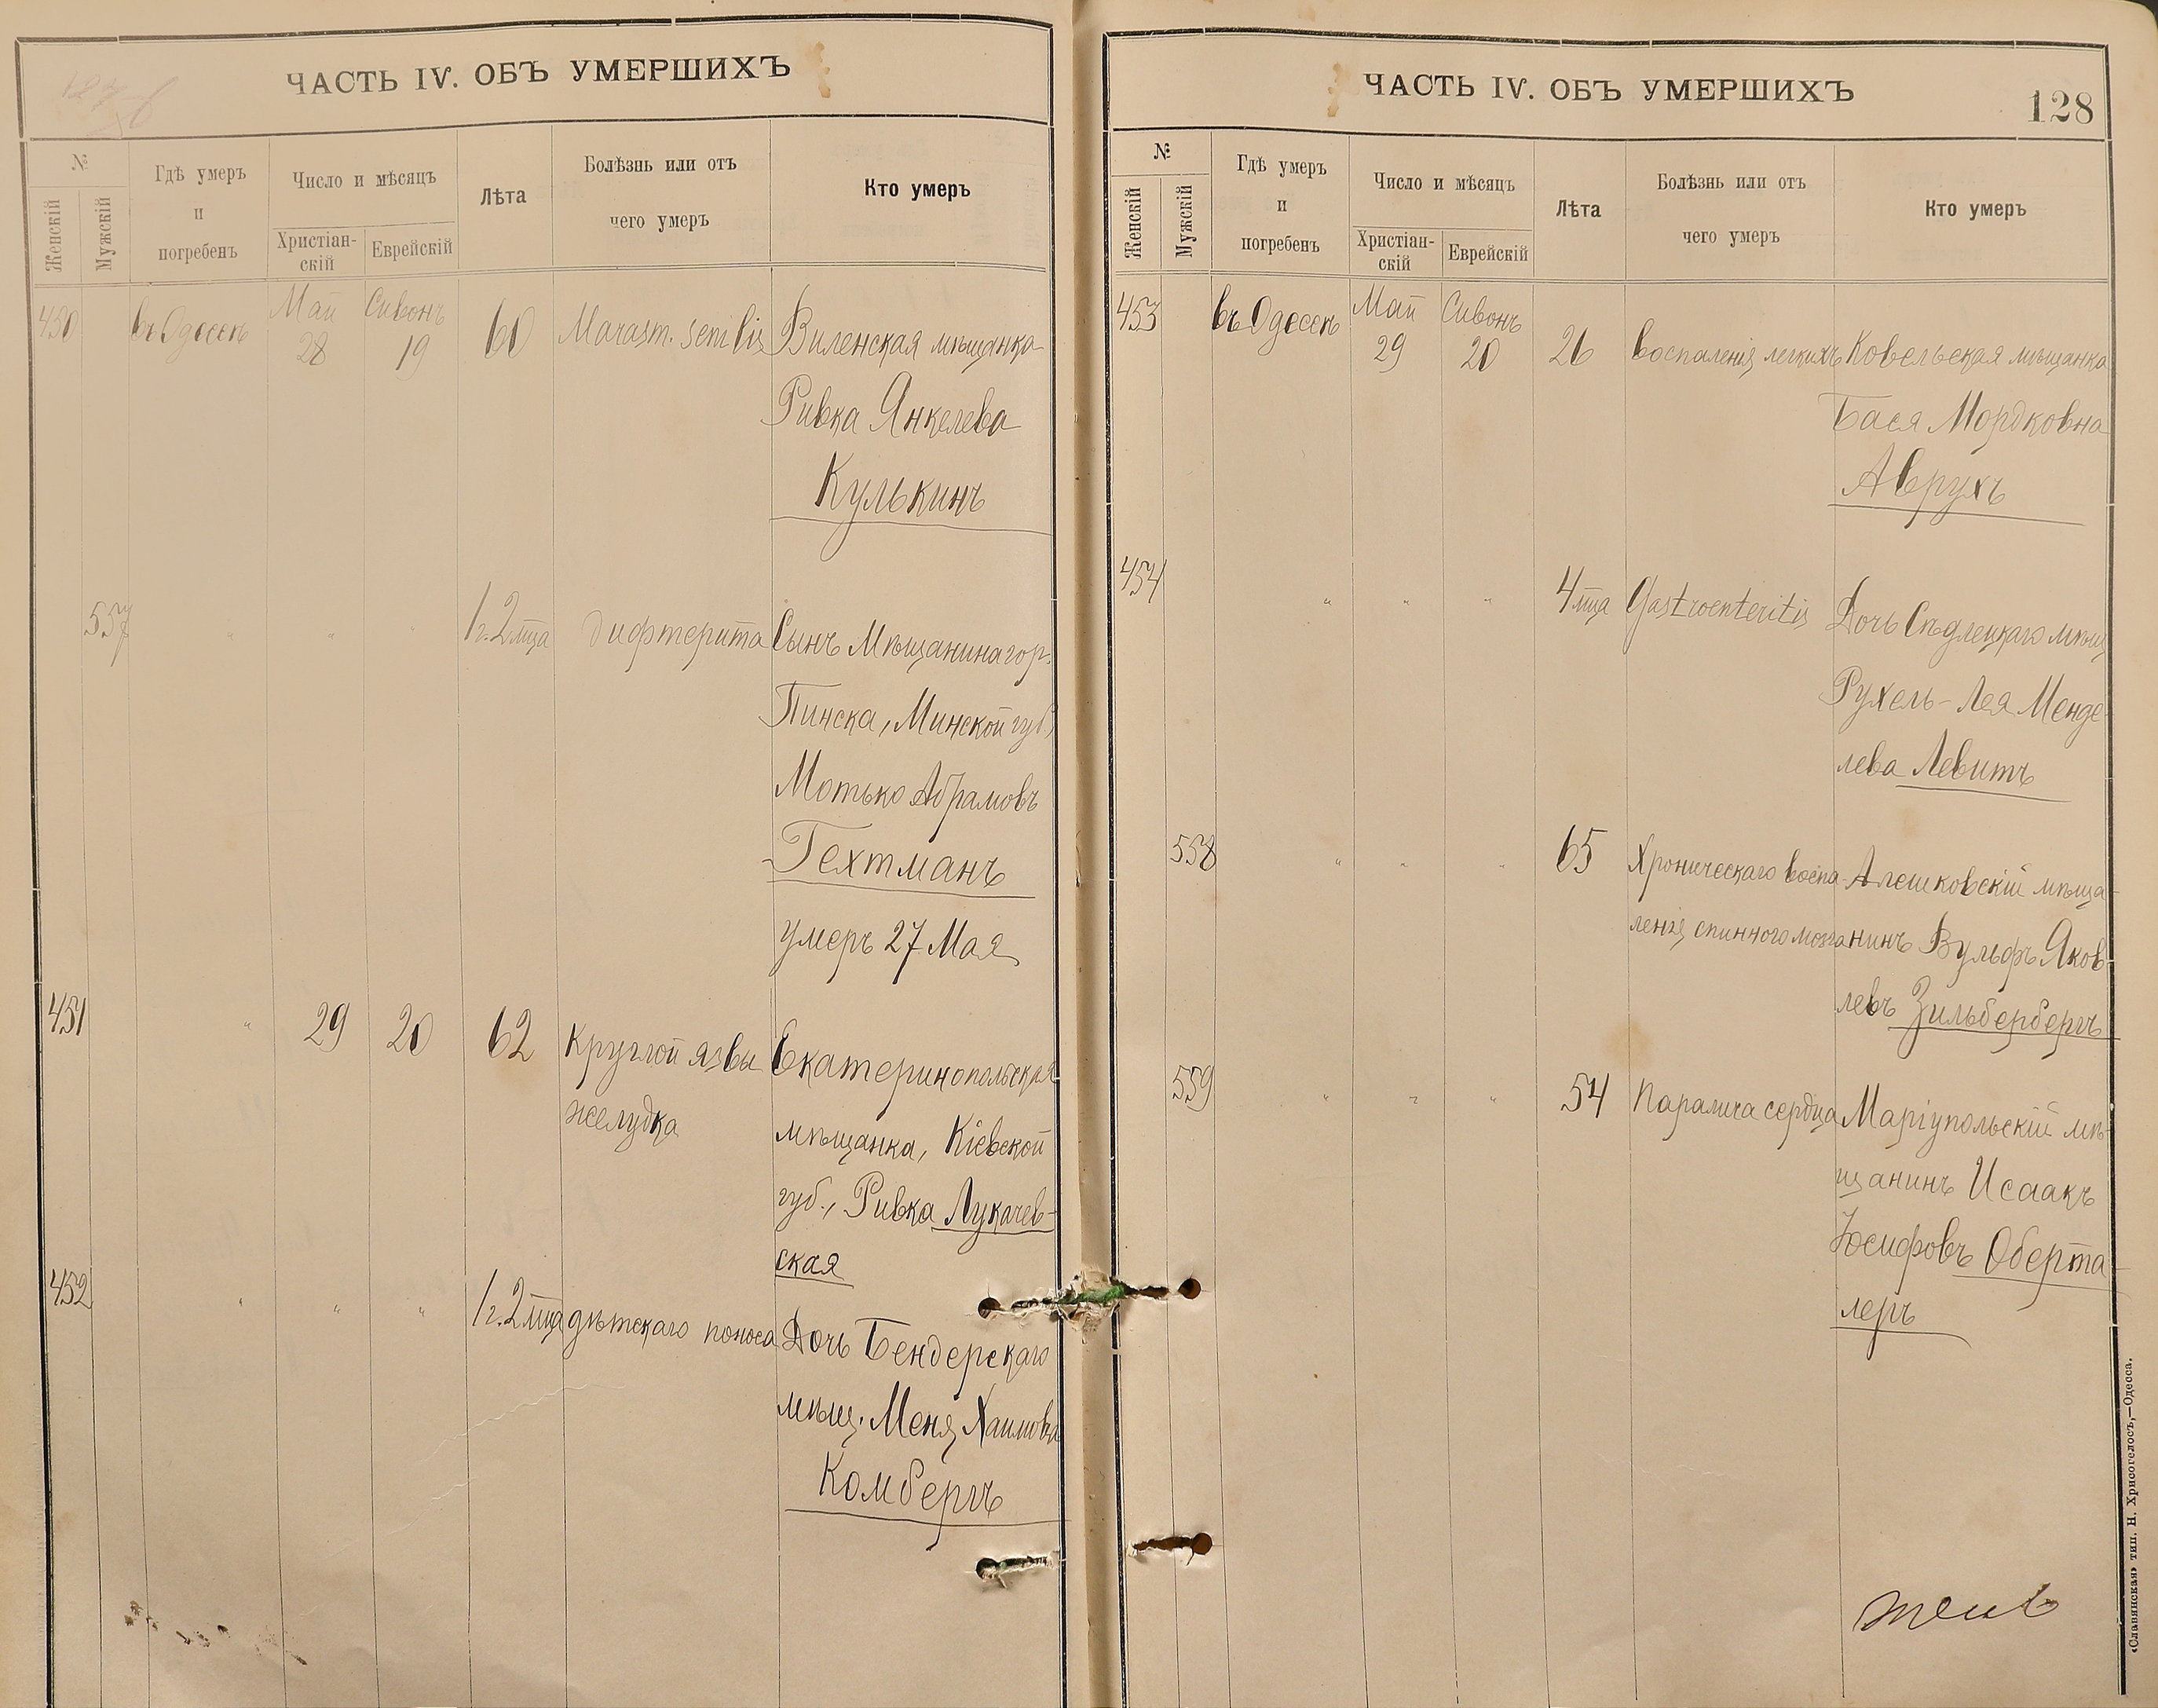 ЧАСТЬ IV. ОБЪ УМЕРШИХЪ
№
Женскій
Мужскій
Гдѣ умеръ
и
погребенъ
Число и мѣсяцъ
Христіан-
скій
Еврейскій
Лѣта
Болѣзнь или отъ
чего умеръ
Кто умеръ
450 въ Одессѣ Май 28 Сивонъ 19 60 Marasm. senilis Виленская мѣщанка
Ривка Янкелева
Кулькинъ
557 " " " 1 г. 2 мца дифтерита Сынъ Мѣщанина гор.
Пинска, Минской губ.,
Мотько Абрамовъ
Гехтманъ
умеръ 27 Мая
451 " 29 20 62 Круглой язвы Екатеринопольская
желудка мѣщанка, Кіевской
губ., Ривка Лукачев-
ская
452 " " " 1 г. 2 мца дѣтскаго поноса Дочь Бендерскаго
мѣщ. Меня Хаимовна
Комбергъ
ЧАСТЬ IV. ОБЪ УМЕРШИХЪ
128
№
Женскій
Мужскій
Гдѣ умеръ
и
погребенъ
Число и мѣсяцъ
Христіан-
скій
Еврейскій
Лѣта
Болѣзнь или отъ
чего умеръ
Кто умеръ
453 въ Одессѣ Май 29 Сивонъ 20 26 воспаленія легкихъ Ковельская мѣщанка
Бася Мордковна
Аврухъ
454 " " " 4 мца Gastroenteritis Дочь Сѣдлецкаго мѣщ
Рухель-Лея Менде
лева Левитъ
558 " " " 65 Хроническаго воспа- Алешковскій мѣща-
ленія спиннаго мозга нинъ Вульфъ Яков-
левъ Зильбербергъ
559 " " " 54 Паралича сердца Маріупольскій мѣ-
щанинъ Исаакъ
Іосифовъ Оберта-
леръ
«Славянская» тип. Н. Хрисогелосъ,—Одесса.